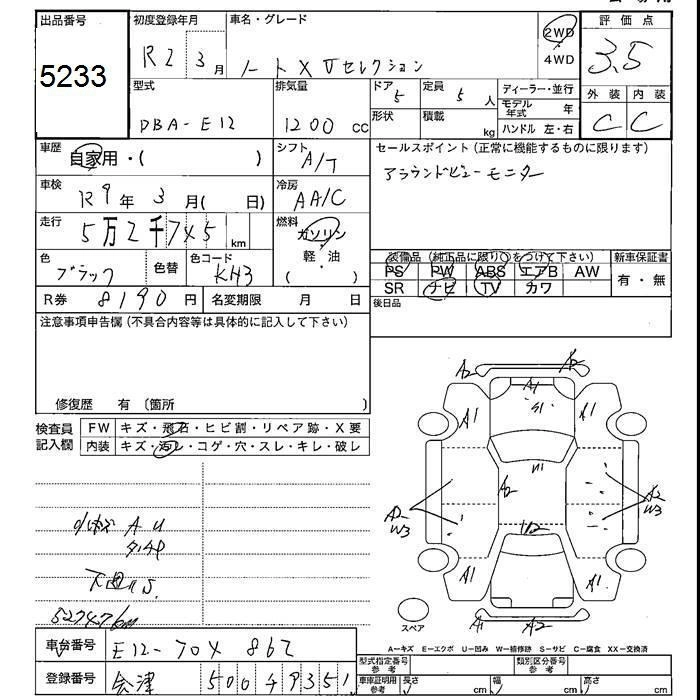 出品番号
5233
初度登録年月
R2 3月
車名・グレード
ノート X Vセレクション
2WD
・
4WD
評価点
3.5
外装 内装
C C
型式
DBA-E12
排気量
1200 cc
ドア
5
定員
5 人
形状
積載
kg
ディーラー・並行
モデル年式 年
ハンドル 左・右
車歴
自家用・( )
シフト
A/T
セールスポイント(正常に機能するものに限ります)
アラウンドビューモニター
車検
R9年 3月( 日)
冷房
AA/C
走行
5万2千745 km
燃料
ガソリン
・
軽・油
( )
色
ブラック
色替
色コード
KH3
装備品(純正品に限り○をつけて下さい)
PS PW ABS エアB AW
SR ナビ TV カワ
新車保証書
有・無
R券 8190円
名変期限 月 日
後日品
注意事項申告欄(不具合内容等は具体的に記入して下さい)
修復歴 有 〔箇所 〕
検査員
記入欄
FW キズ・飛石・ヒビ割・リペア跡・X要
内装 キズ・汚れ・コゲ・穴・スレ・キレ・破レ
小キズ A U
下廻りS.
52747km
A2 A2
A1
A1 S1 A1
A2
A2
W3
A2
W3
U2
A1 A1
A1 A2
スペア
A−キズ E−エクボ U−凹み W−補修跡 S−サビ C−腐食 XX−交換済
車台番号 E12-704862
登録番号 会津 500 サ 9351
型式指定番号
参考
類別区分番号
参考
車庫証明用
参考
長さ cm
幅 cm
高さ cm